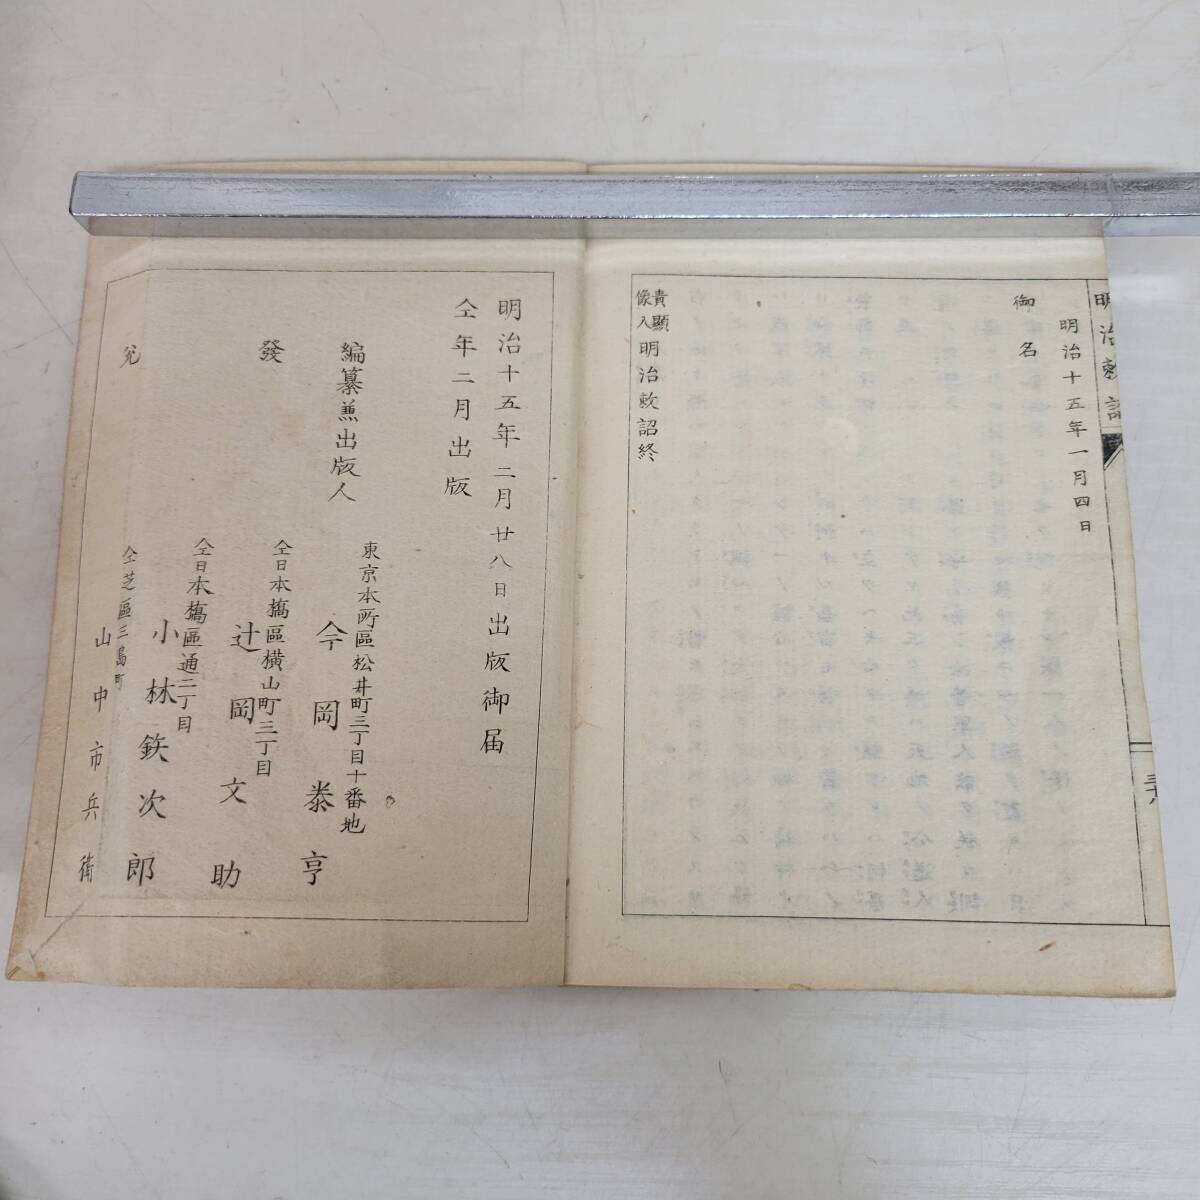 明治敕詔
三八
明治十五年一月四日
御名
貴顯像入 明治敕詔終
明治十五年二月廿八日出版御届
仝年二月出版
編纂兼出版人
東京本所區松井町三丁目十番地
今岡泰亨
發
仝日本橋區横山町三丁目
辻岡文助
仝日本橋區通二丁目
小林鉄次郎
兌
仝芝區三島町
山中市兵衛